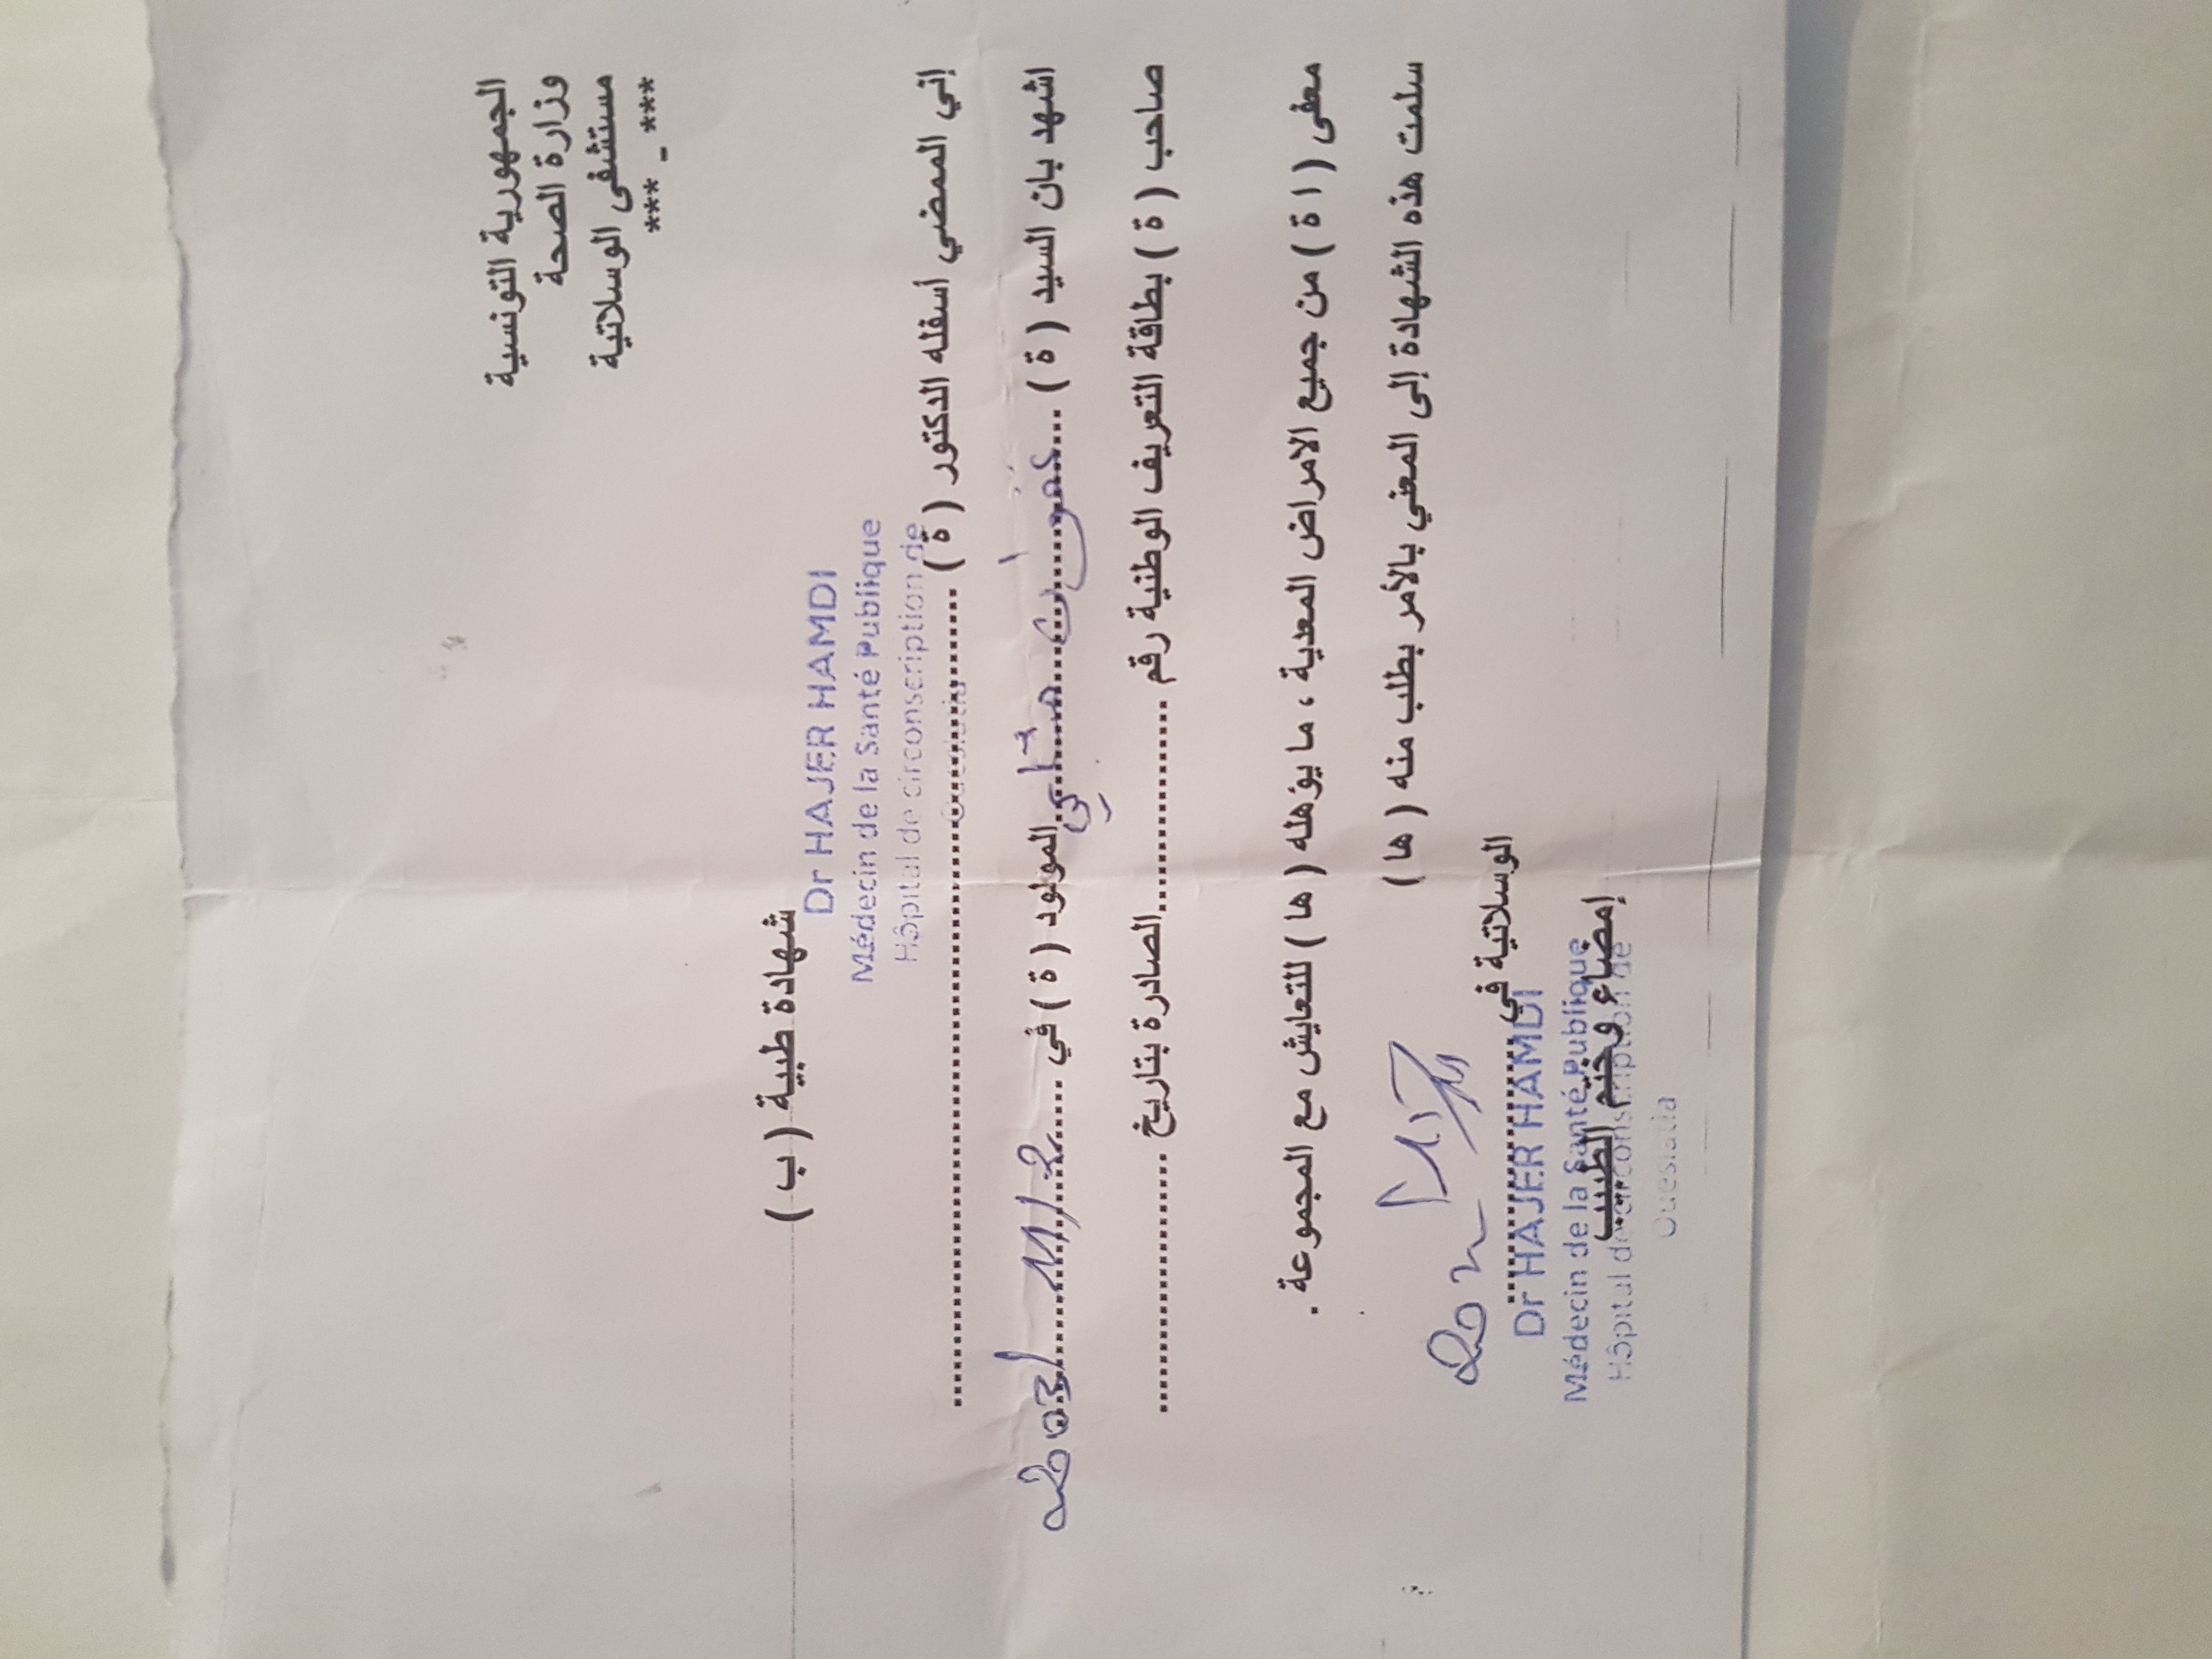 الجمهورية التونسية
وزارة الصحة
مستشفى الوسلاتية
*** _ ***
شهادة طبية ( ب )
Dr HAJER HAMDI
Médecin de la Santé Publique
Hôpital de circonscription de
إني الممضي أسفله الدكتور ( ة ) ..........
اشهد بان السيد ( ة ) .......... المولود ( ة ) في .......... 2003
صاحب ( ة ) بطاقة التعريف الوطنية رقم .......... الصادرة بتاريخ ..........
معفى ( ا ة ) من جميع الامراض المعدية ، ما يؤهله ( ها ) للتعايش مع المجموعة .
سلمت هذه الشهادة إلى المعني بالأمر بطلب منه ( ها )
الوسلاتية في ..........
إمضاء و ختم الطبيب
Dr HAJER HAMDI
Médecin de la Santé Publique
Hôpital de circonscription de
Oueslatia